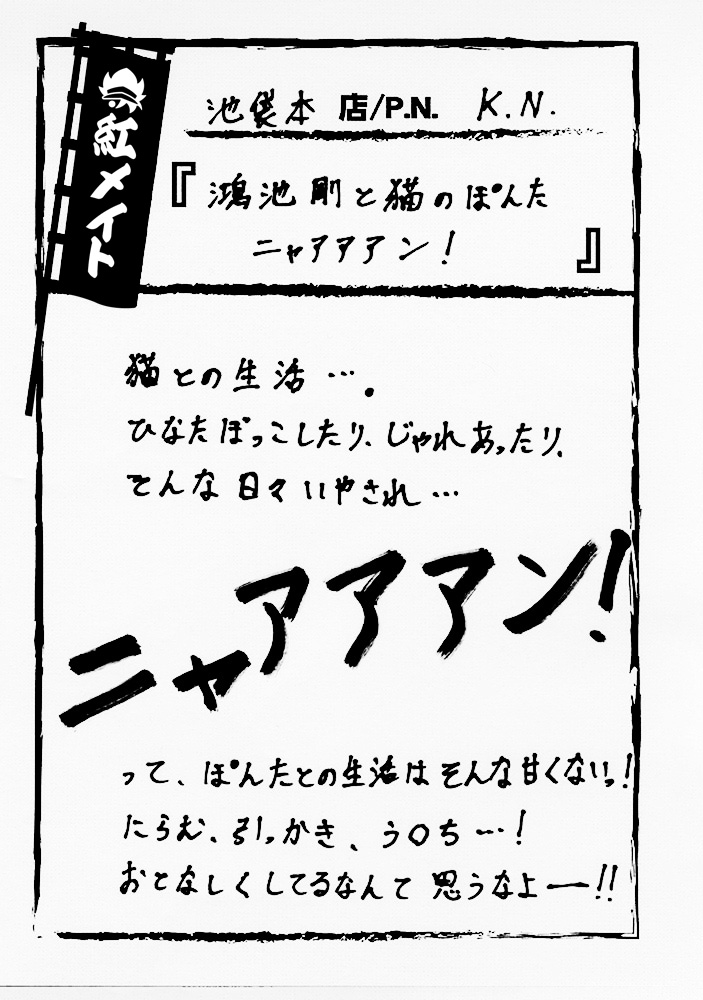 紅メイト
池袋本 店/P.N. K.N.
『鴻池剛と猫のぽんた
ニャアアアン！』
猫との生活…。
ひなたぼっこしたり、じゃれあったり、
そんな日々いやされ…
ニャアアアン！
って、ぽんたとの生活はそんな甘くないっ！
にらむ、引っかき、う〇ち…！
おとなしくしてるなんて思うなよー!!